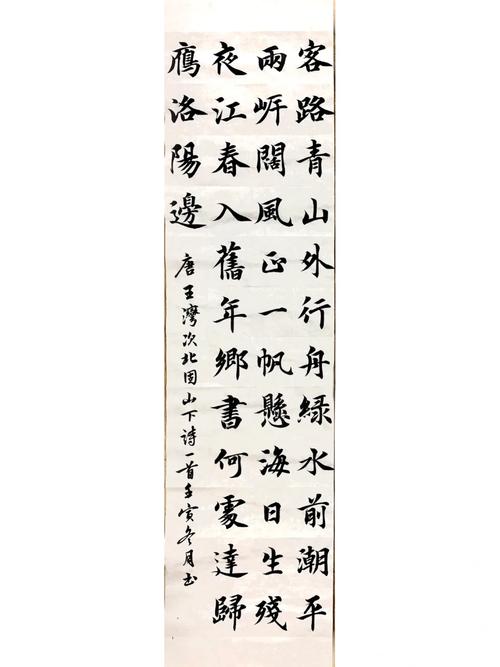 客路青山外行舟綠水前潮平
兩岍闊風正一帆懸海日生殘
夜江春入舊年鄉書何處達歸
鴈洛陽邊
唐王灣次北固山下詩一首壬寅冬月書